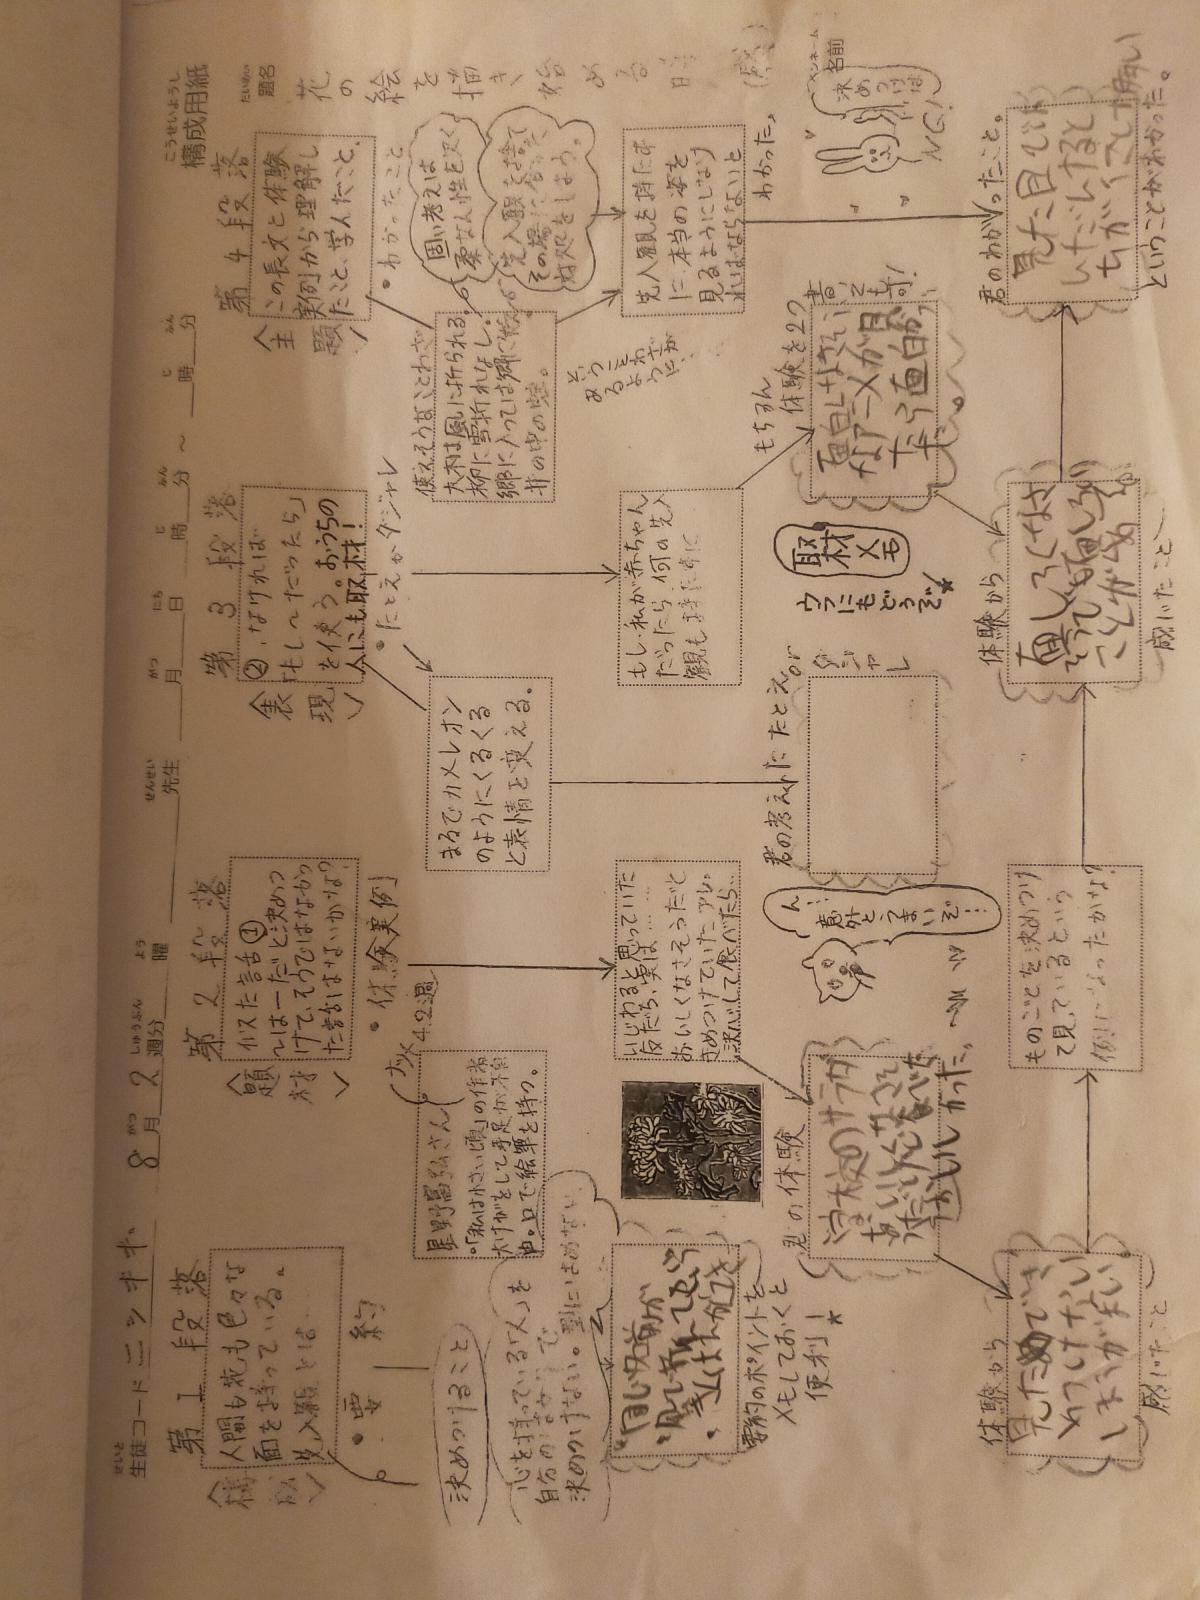 こうせいようし
構成用紙
せいと
生徒コード ニッキキ.
がつ しゅうぶん よう
8月 2週分 曜
せんせい
先生
がつ にち じ ふん じ ふん
月 日 時 分 ～ 時 分
だいめい
題名
花の絵を描き始める日
(感)
ペンネーム
名前
第1段落
人間も花も色々な
面を持っている。
先入観とは…
・要約
決めつけること
心を持っている「人」を
自分のものさしで
決めつけない。型にはめない
要約のポイントを
メモしておくと
便利!★
体験から
見ためでき
めつけない
感じたこと
第2段落
〈題材〉
似た話①
～は―だと決めつ
けて、そうではなかっ
た話はないかな?
・体験実例
ナツメ4.2週
星野富弘さん
・「私は小さい頃」の作者
大けがをして手足が不自
由。口で絵筆を持つ。
いじわると思っていた
友だち、実は……
おいしくなさそうだと
きめつけていたアレ。
決心して食べたら…
君の体験
学校のサラダ
おいしくなさそ
うだけど食べた
らおいしかった。
ん…
意外とうまいぞ…
ものごとを決めつけ
て見ているという
例になったかな?
第3段落
〈表現〉
②、なければ
「もし～だったら」
を使う。おうちの
人にも取材!
・たとえかダジャレ
まるでカメレオン
のようにくるくる
と表情を変える。
もし、私が赤ちゃん
だったら何の先入
観も持たずに
君の考えたたとえor
ダジャレ
取材メモ
ウラにもどうぞ★
もちろん
体験を2つ
書いても可!
面白しなさそう
なアニメが見
たら面白かっ
た。
体験から
面しろくなさ
そうでも面しろ
いことがある
感じたこと
第4段落
〈主題〉
この長文と体験
実例から理解し
たこと、学んだこと、
・わかったこと
固い考えは
柔軟性を欠く
先入観を捨て
その場に合った
対処をしよう。
使えそうなことわざ
大木は風に折られる。
柳に雪折れなし。
郷に入っては郷に従え。
井の中の蛙。
先入観を持たず
に、本当の姿を
見るようにしなけ
ればならないと
わかった。
決めつけは
NG!
君のわかったこと。
見た目では
んだんすると
ちがくてて損い
ということがわかった。